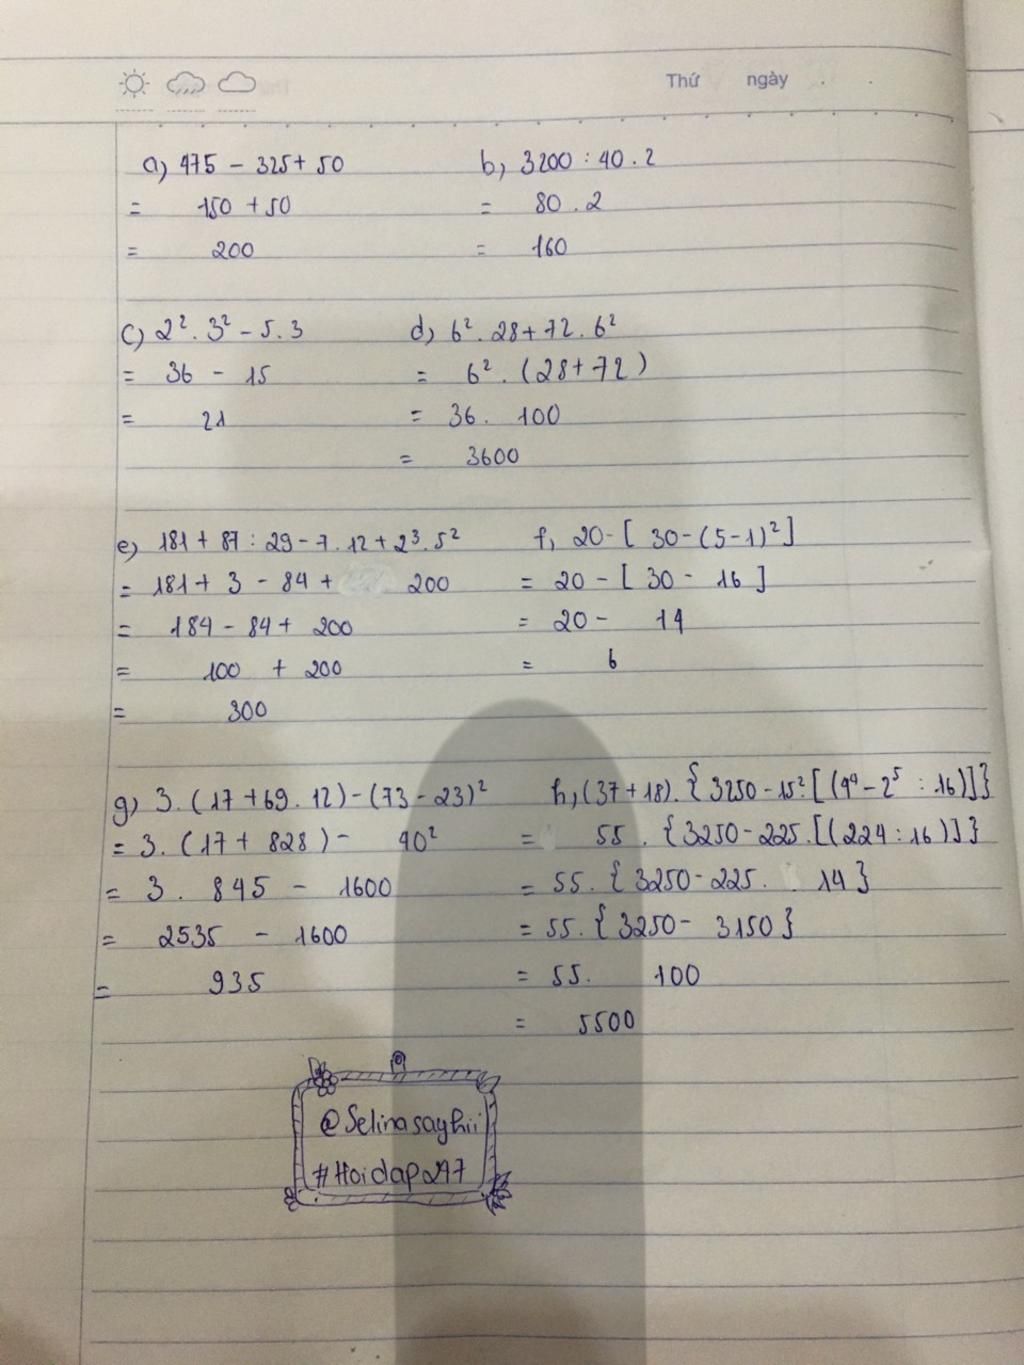 Thứ ngày
a) 475 - 325 + 50
= 150 + 50
= 200
b, 3200 : 40 . 2
= 80 . 2
= 160
c) 2² . 3² - 5 . 3
= 36 - 15
= 21
d, 6² . 28 + 72 . 6²
= 6² . (28 + 72)
= 36 . 100
= 3600
e) 181 + 87 : 29 - 7 . 12 + 2³ . 5²
= 181 + 3 - 84 + 200
= 184 - 84 + 200
= 100 + 200
= 300
f, 20 - [ 30 - (5 - 1)² ]
= 20 - [ 30 - 16 ]
= 20 - 14
= 6
g) 3 . (17 + 69 . 12) - (73 - 23)²
= 3 . (17 + 828) - 40²
= 3 . 845 - 1600
= 2535 - 1600
= 935
h, (37 + 18) . { 3250 - 15² . [ (4⁴ - 2⁵ : 16) ] }
= 55 . { 3250 - 225 . [ (224 : 16) ] }
= 55 . { 3250 - 225 . 14 }
= 55 . { 3250 - 3150 }
= 55 . 100
= 5500
@Selinasayhii
#Hoidap247